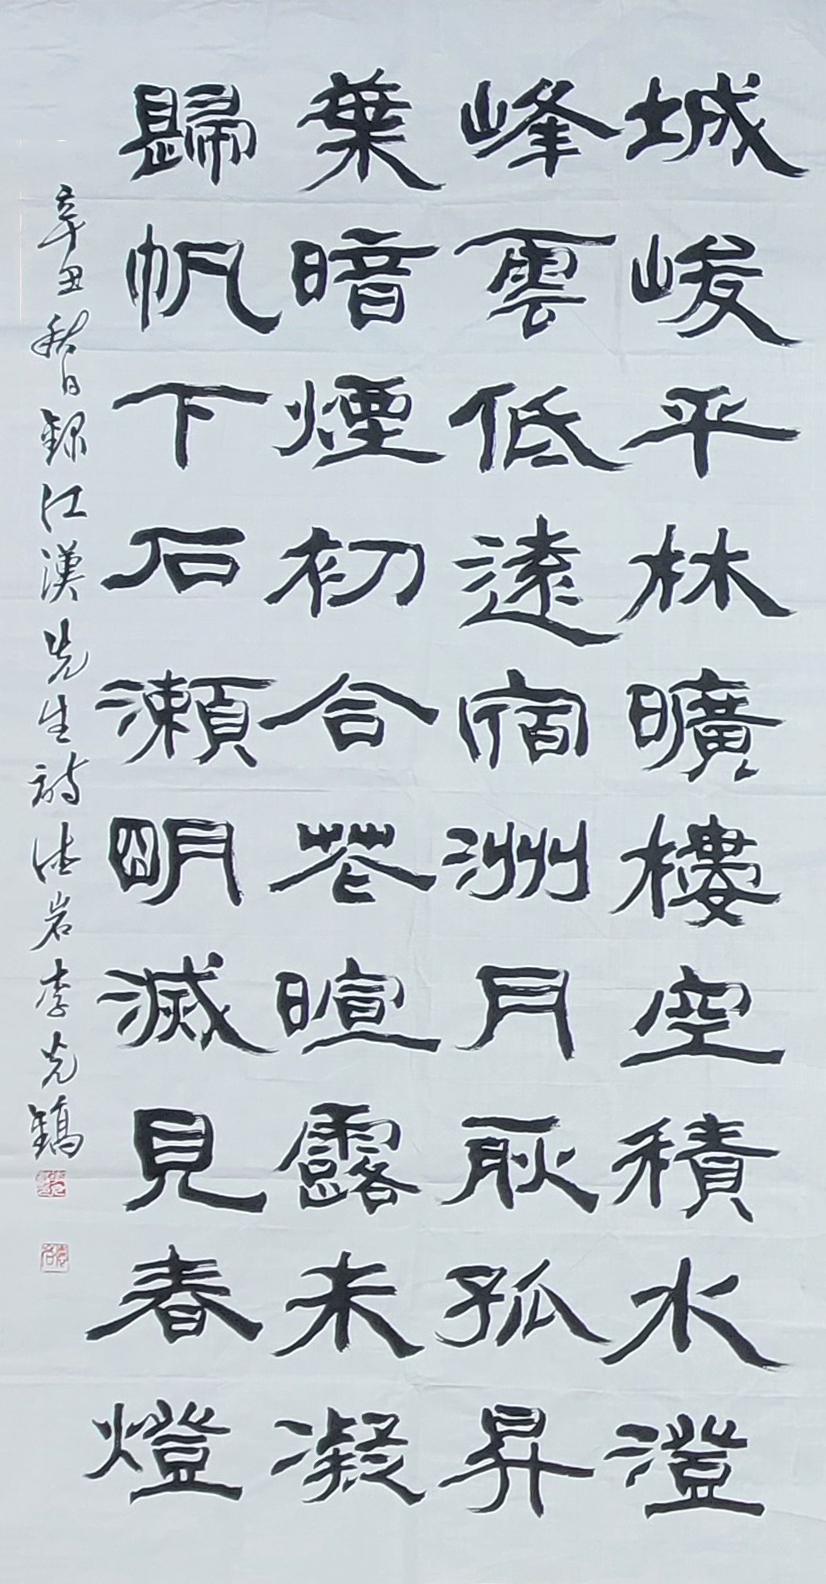 城峻平林曠樓空積水澄
峰雲低遠宿洲月耿孤昇
葉暗煙初合花暄露未凝
歸帆下石瀨明滅見春燈
辛丑秋日録江漢先生詩法岩李克鎬